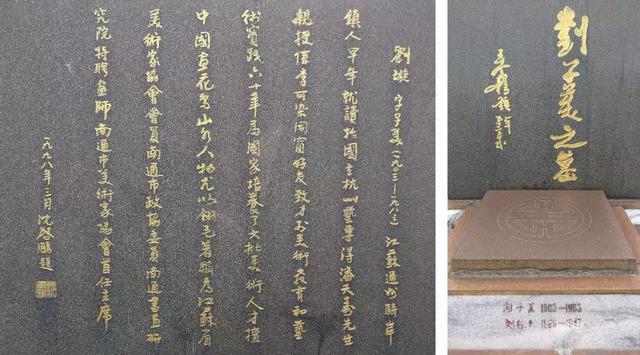 劉璇 字子美(一九〇三—一九八三) 江蘇通州騎岸
鎮人早年就讀於國立杭州藝專得潘天壽先生
親授偕李可染同窗好友致力於美術教育和藝
術實踐六十年爲國家培養了大批美術人才擅
中國畫花鳥山水人物尤以翎毛著稱爲江蘇省
美術家協會會員南通市政協委員南通書畫研
究院特聘畫師南通市美術家協會首任主席
一九九八年三月沈啓鵬題
劉子美之墓
刘子美 1903—1983